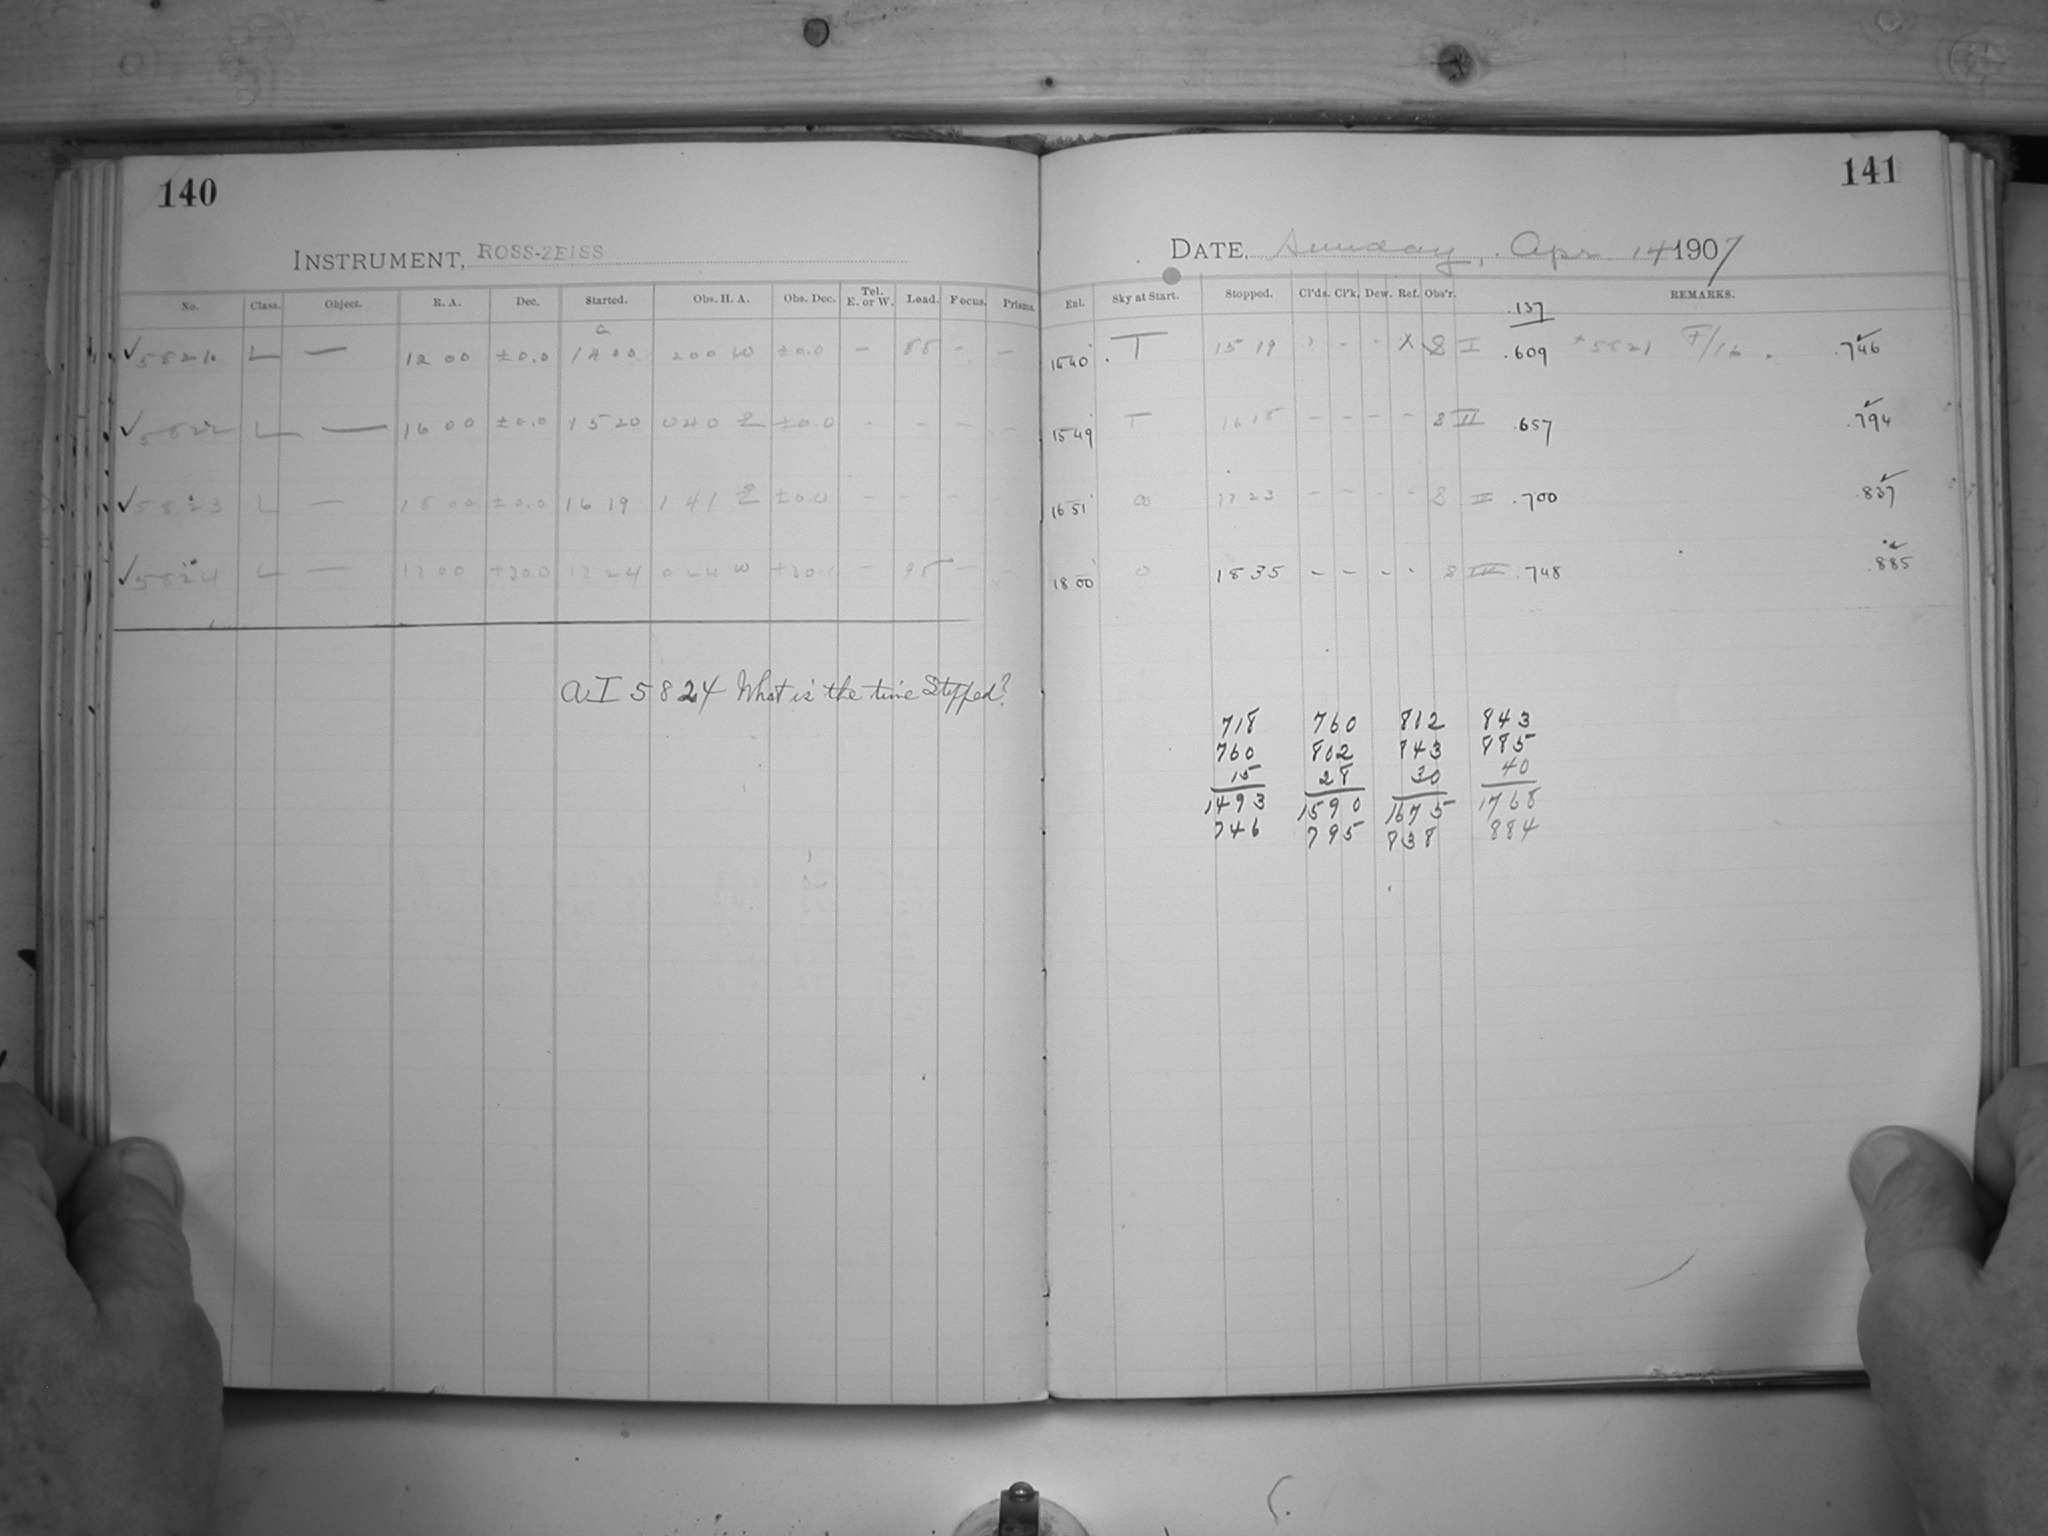 140
INSTRUMENT, ROSS-ZEISS
No. Class. Object. R. A. Dec. Started. Obs. H. A. Obs. Dec. Tel. E. or W. Load. Focus. Prisms.
✓5821 L — 12 00 ±0.0 14 00 2 00 W ±0.0 – 88 – –
✓5822 L — 16 00 ±0.0 15 20 0 40 E ±0.0 – – – –
✓5823 L — 18 00 ±0.0 16 19 1 41 E ±0.0 – – – –
✓5824 L — +30.0 0 24 W +30.0 – –
A.I 5824 What is the time Stopped?
141
DATE, Sunday, Apr. 14 1907
Exl. Sky at Start. Stopped. Cl'ds. Cl'k. Dew. Ref. Obs'r. REMARKS.
.137
T 15 19 – – X S I .609 5821 F/16 . .746
15 49 T 16 18 – – – – S II .657 .794
16 51 – – – – S .700 .837
18 00 18 35 – – – · S .748 .885
718 760 812 843
760 802 843 885
15 28 30 40
1493 1590 1675 1768
746 795 838 884